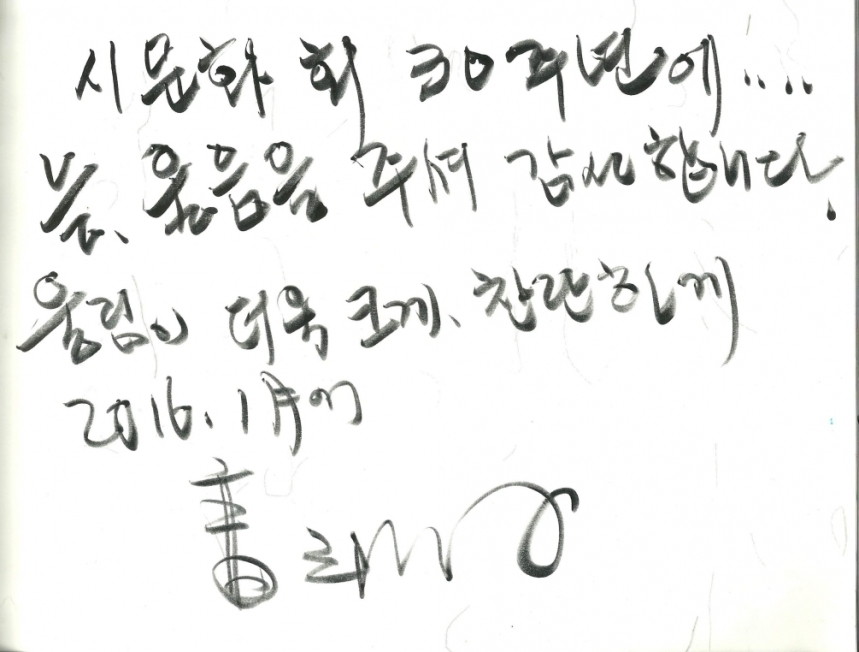 시문화회 30주년에....
봄, 웃음을 주셔 감사합니다.
울림이 더욱 크게, 찬란하게
2016. 1月에